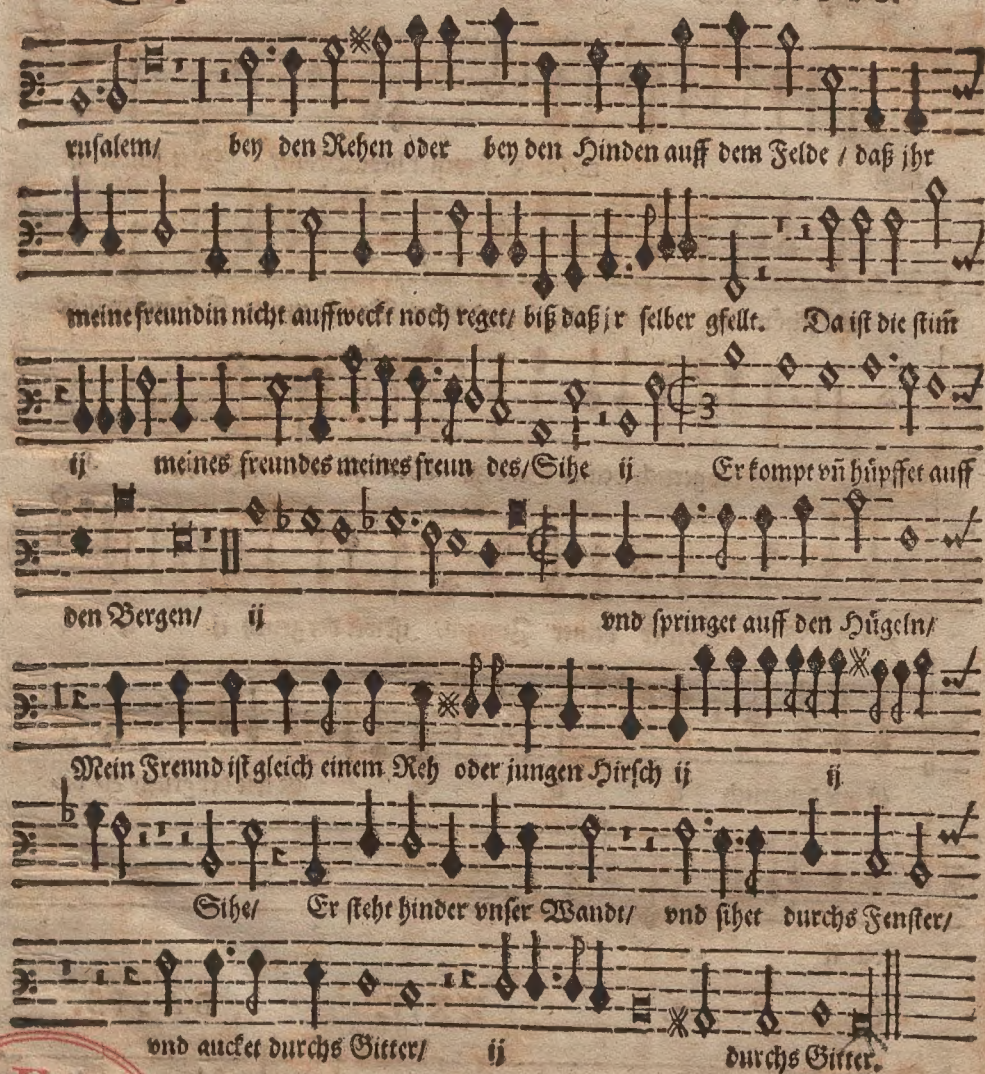 rusalem/ bey den Rehen oder bey den Hinden auff dem Felde / daß jhr
meine freundin nicht auffweckt noch reget/ biß daß jr selber gfellt. Da ist die stim̃
ij meines freundes meines freun des/Sihe ij Er kompt vñ hüpffet auff
den Bergen/ ij vnd springet auff den Hügeln/
Mein Freund ist gleich einem Reh oder jungen Hirsch ij ij
Sihe/ Er steht hinder vnser Wandt/ vnd sihet durchs Fenster/
vnd aucket durchs Gitter/ ij durchs Gitter.